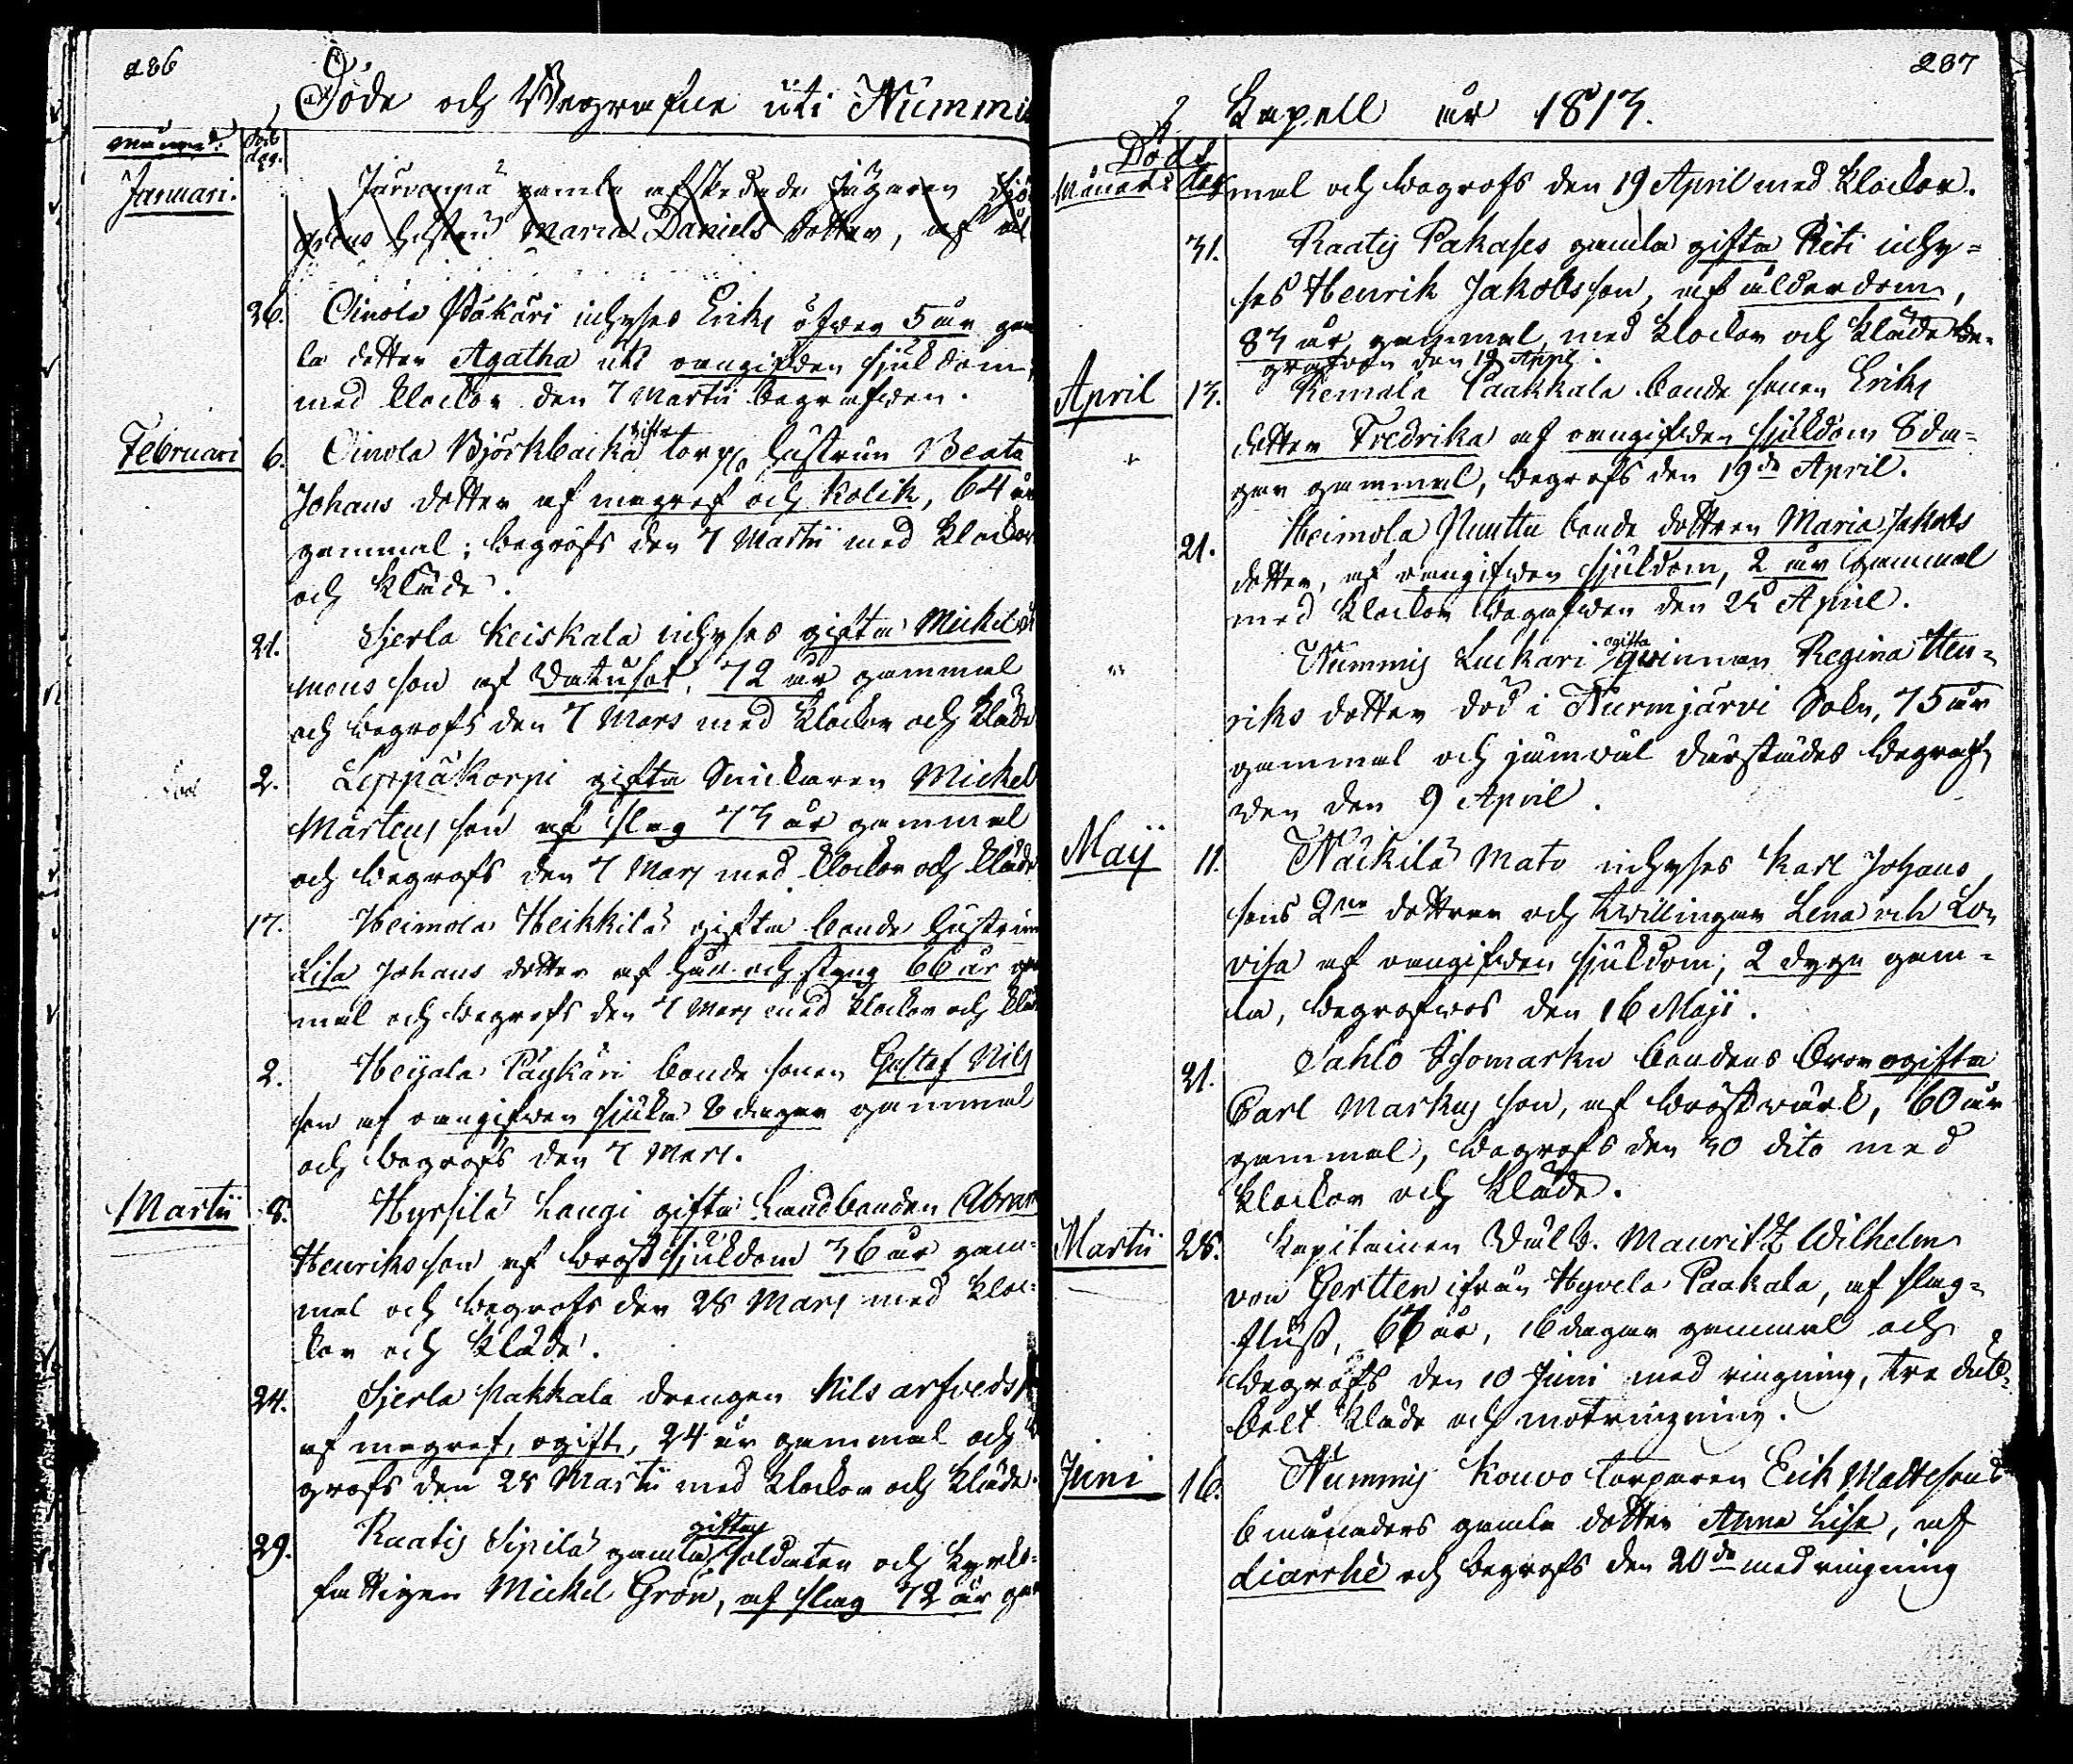 286
Döde och Begrafne uti Nummi
Månad. Döds dag.
Januari. Järvenpä gamla afskedade Jägaren
hustru Maria Daniels dotter, af
26. Oinola Päkäri inhyses Eriks öfwer 5 år gam
la dotter Agatha utaf oangifven sjukdom,
med klockor den 7 Martii begrafwen.
Februari 6. Oinola Björkbacka gifta torp. hustrun Beata
Johans dotter af magref och kolik, 64 år
gammal; begrofs den 7 Martii med klockor
och kläde.
21. Sjerla Keiskala inhyses gifta Mickel
mons son af Watusot, 72 år gammal
och begrofs den 7 Mars med klockor och kläde
2. Leppäkorpi gifta Snickaren Mickel
Mårtens son af slag 73 år gammal
och begrofs den 7 Mars med klockor och kläde
17. Heimola Heikkilä gifta bonde hustrun
Lisa Johans dotter af håll och styng 66 år gam
mal och begrofs den 7 Mars med klockor och kläd
2. Heijala Päykäri bonde sonen Gustaf Nils
son af oangifwen sjuka 6 dagar gammal
och begrofs den 7 Mars.
Martii 8. Hyrsilä Laugi gifta Landbonden Abram
Henriks son af bröstsjukdom 36 år gam-
mal och begrofs den 28 Mars med kloc-
kor och kläde.
24. Sjerla Pakkala drengen Nils arfveds
af magref, ogift, 24 år gammal och be
grofs den 28 Martii med klockor och kläde.
29. Raatis Sipilä gamla gifta soldaten och kyrko-
fattigen Mickel Grön, af slag 72 år gam
287
Kapell år 1813.
Döds
Månad. dag mal och begrofs den 19 April med klockor.
31. Raatis Pakases gamla gifta Riti inhy-
ses Henrik Jakobsson, af ålderdom,
83 år gammal, med klockor och kläde be-
grafven den 19 April.
April 13. Remala Paakkala bonde sonen Eriks
dotter Fredrika af oangifven sjukdom 8 da-
gar gammal, begrofs den 19de April.
21. Heimola Nuutta bonde dottren Maria Jakobs
dotter, af oangifwen sjukdom, 2 år gammal
med klockor begrafwen den 25 April.
Nummis Luckari ogifta qwinnan Regina Hen-
riks dotter död i Nurmijärvi Sokn, 75 år
gammal och jämwäl därstädes begraf-
wen den 9 April.
Maji 11. Näckilä Mato inhyses Karl Johans
sons 2ne dottrar och twillingar Lena och Lo-
visa af oangifwen sjukdom; 2 dygn gam-
la, begrofwos den 16 Maji.
21. Sahlo Isomarku bondens bror ogifta
Carl Markus son, af bröstwärk, 60 år
gammal, begrofs den 30 dito med
klockor och kläde.
Martii 28. Kapitainen Wälb. Mauritz Wilhelm
von Gertten ifrån Hyvela Paakala, af slag-
fluss, 66 år, 16 dagar gammal och
begrofs den 10 Juni med ringning, tre dub-
belt kläde och motringning.
Juni 16. Nummis Kouvo torparen Erik Mattssons
6 månaders gamla dotter Anna Lisa, af
diarrhé och begrofs den 20de med ringning